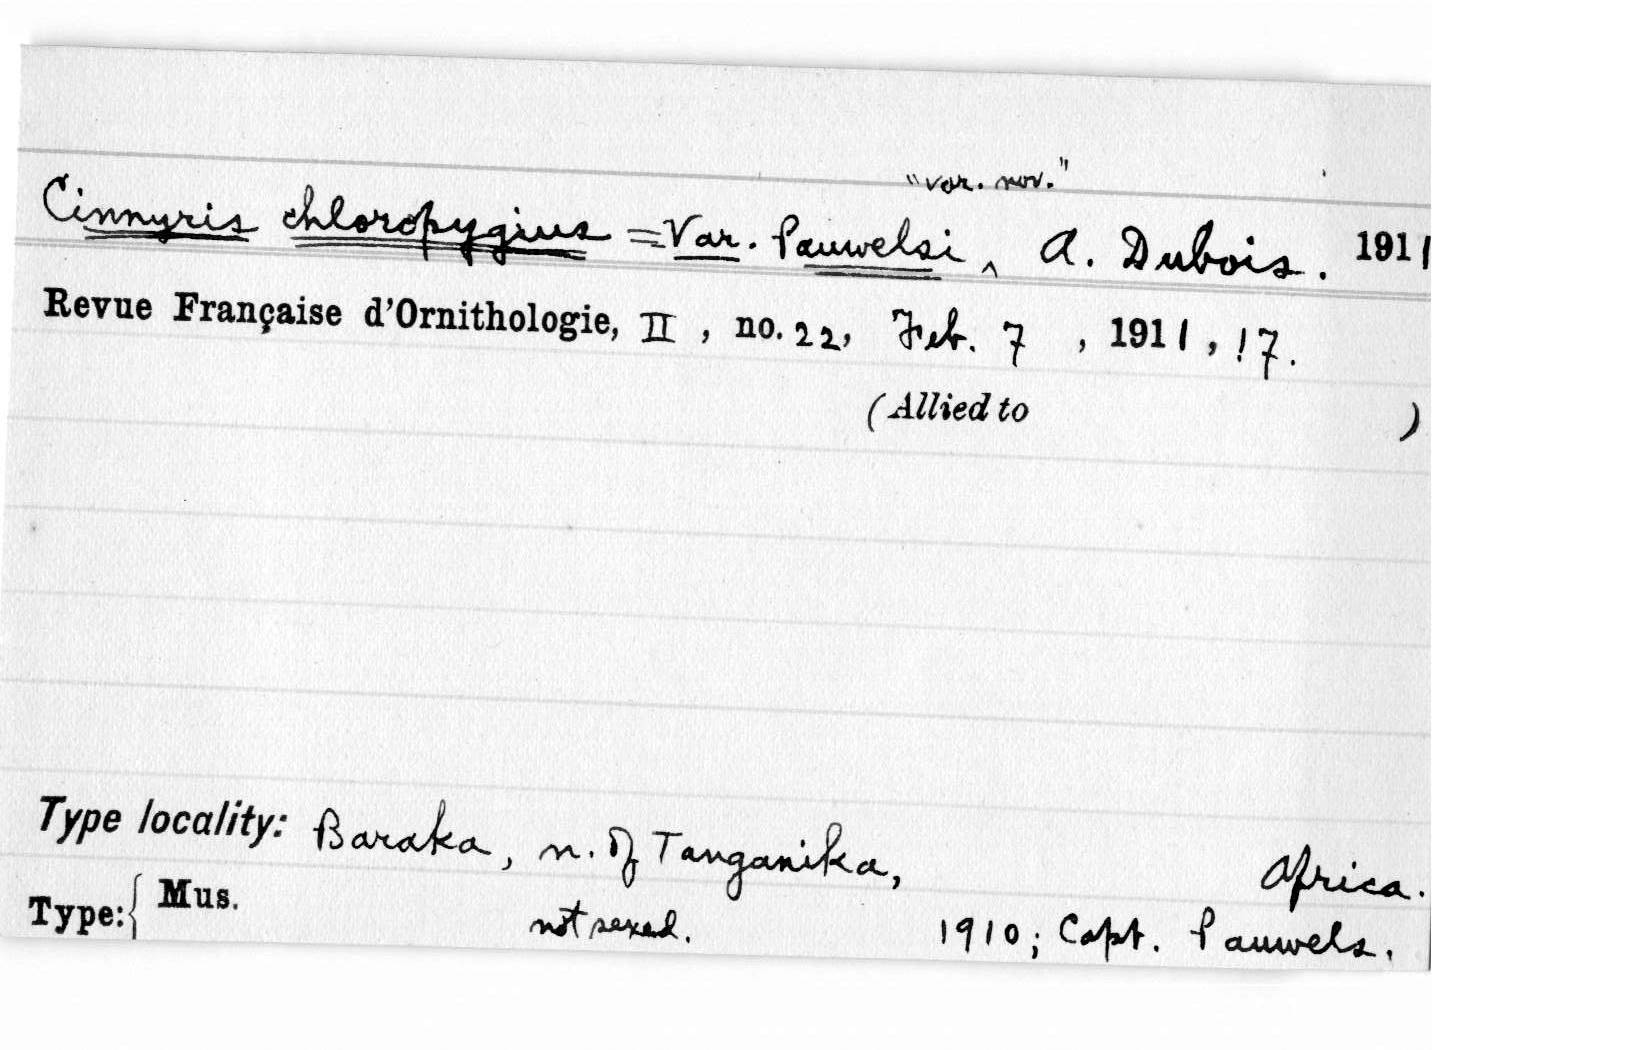 "var. nov."
Cinnyris chloropygius = Var. Pauwelsi ‸ A. Dubois. 1911
Revue Française d'Ornithologie, II, no. 22, Feb. 7, 1911, 17.
(Allied to )
Type locality: Baraka, n. of Tanganika, Africa.
Type: { Mus. not sexed. 1910; Capt. Pauwels.